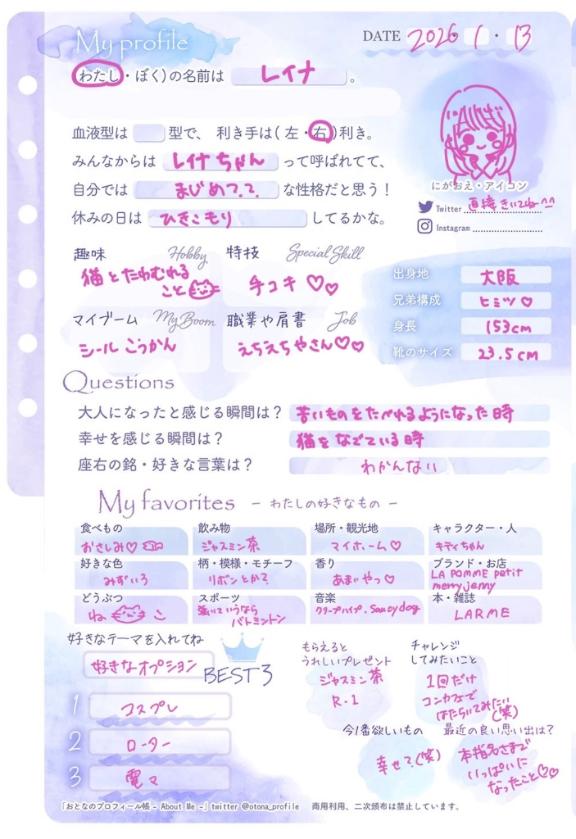 My profile
DATE 2026・1・13
(わたし・ぼく)の名前は レイナ 。
血液型は 型で、 利き手は(左・右)利き。
みんなからは レイナちゃん って呼ばれてて、
自分では まじめっ?? な性格だと思う!
休みの日は ひきこもり してるかな。
にがおえ・アイコン
Twitter 直接きいてね^^
Instagram
趣味 Hobby
猫とたわむれる
こと
特技 Special Skill
手コキ♡♡
マイブーム My Boom
シールこうかん
職業や肩書 Job
えちえちやさん♡♡
出身地 大阪
兄弟構成 ヒミツ♡
身長 153cm
靴のサイズ 23.5cm
Questions
大人になったと感じる瞬間は? 苦いものをたべれるようになった時
幸せを感じる瞬間は? 猫をなでている時
座右の銘・好きな言葉は? わかんない
My favorites - わたしの好きなもの -
食べもの
おさしみ♡
飲み物
ジャスミン茶
場所・観光地
マイホーム♡
キャラクター・人
キティちゃん
好きな色
みずいろ
柄・模様・モチーフ
リボンとか?
香り
あまいやつ♡
ブランド・お店
LA POMME petit
merry jenny
どうぶつ
ねこ
スポーツ
強いていうなら
バトミントン
音楽
クリープハイプ、Saucy dog
本・雑誌
LARME
好きなテーマを入れてね
好きなオプション BEST3
1 コスプレ
2 ローター
3 電マ
もらえると
うれしいプレゼント
ジャスミン茶
R-1
チャレンジ
してみたいこと
1回だけ
コンカフェで
はたらいてみたい
(笑)
今1番欲しいもの
幸せ?(笑)
最近の良い思い出は?
本指名さまで
いっぱいに
なったこと♡♡
「おとなのプロフィール帳 - About Me -」twitter @otona_profile 商用利用、二次頒布は禁止しています。